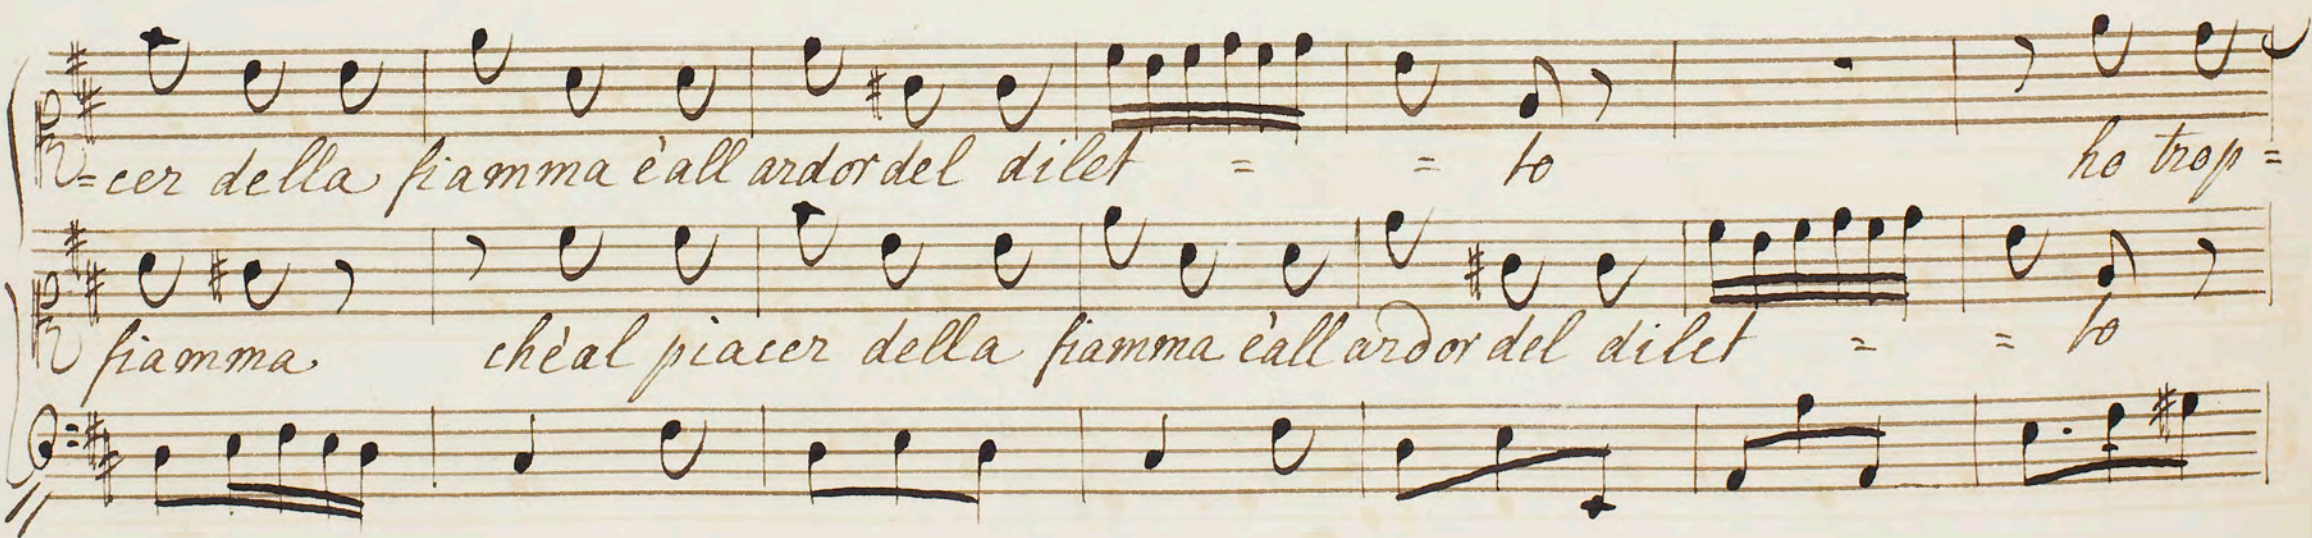 =cer della fiamma è all ardor del dilet = = to ho trop=
fiamma chè al piacer della fiamma è all ardor del dilet = = to